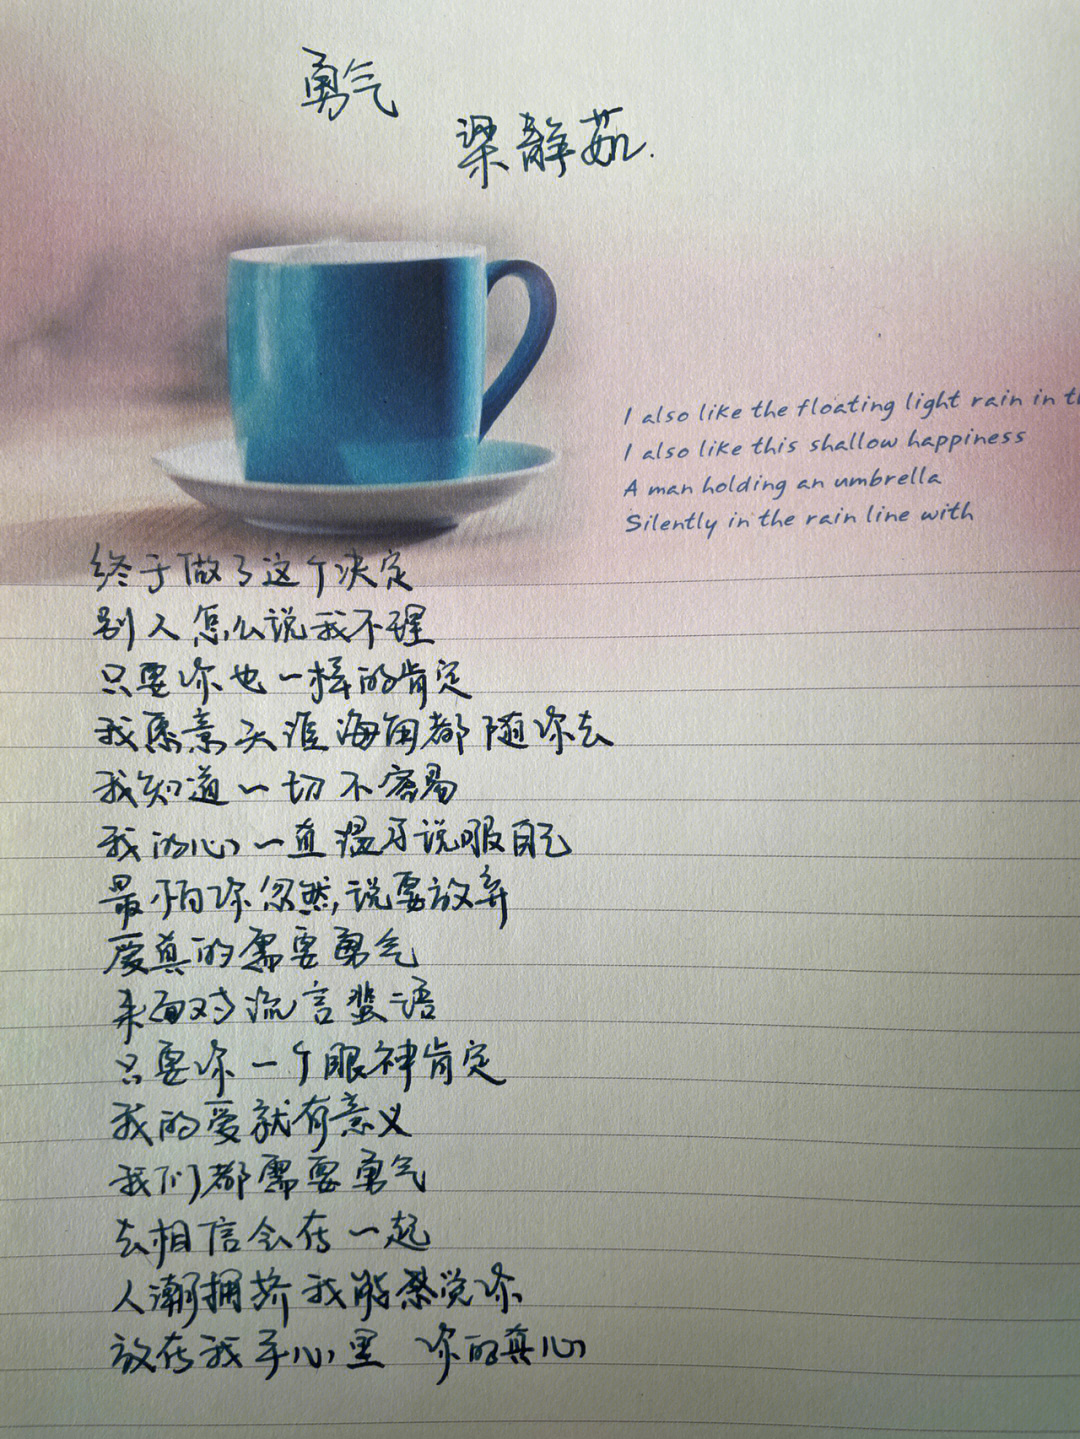 勇气
梁静茹.
I also like the floating light rain in
I also like this shallow happiness
A man holding an umbrella
Silently in the rain line with
终于做了这个决定
别人怎么说我不理
只要你也一样的肯定
我愿意天涯海角都随你去
我知道一切不容易
我的心一直温习说服自己
最怕你忽然说要放弃
爱真的需要勇气
来面对流言蜚语
只要你一个眼神肯定
我的爱就有意义
我们都需要勇气
去相信会在一起
人潮拥挤我能感觉你
放在我手心里 你的真心